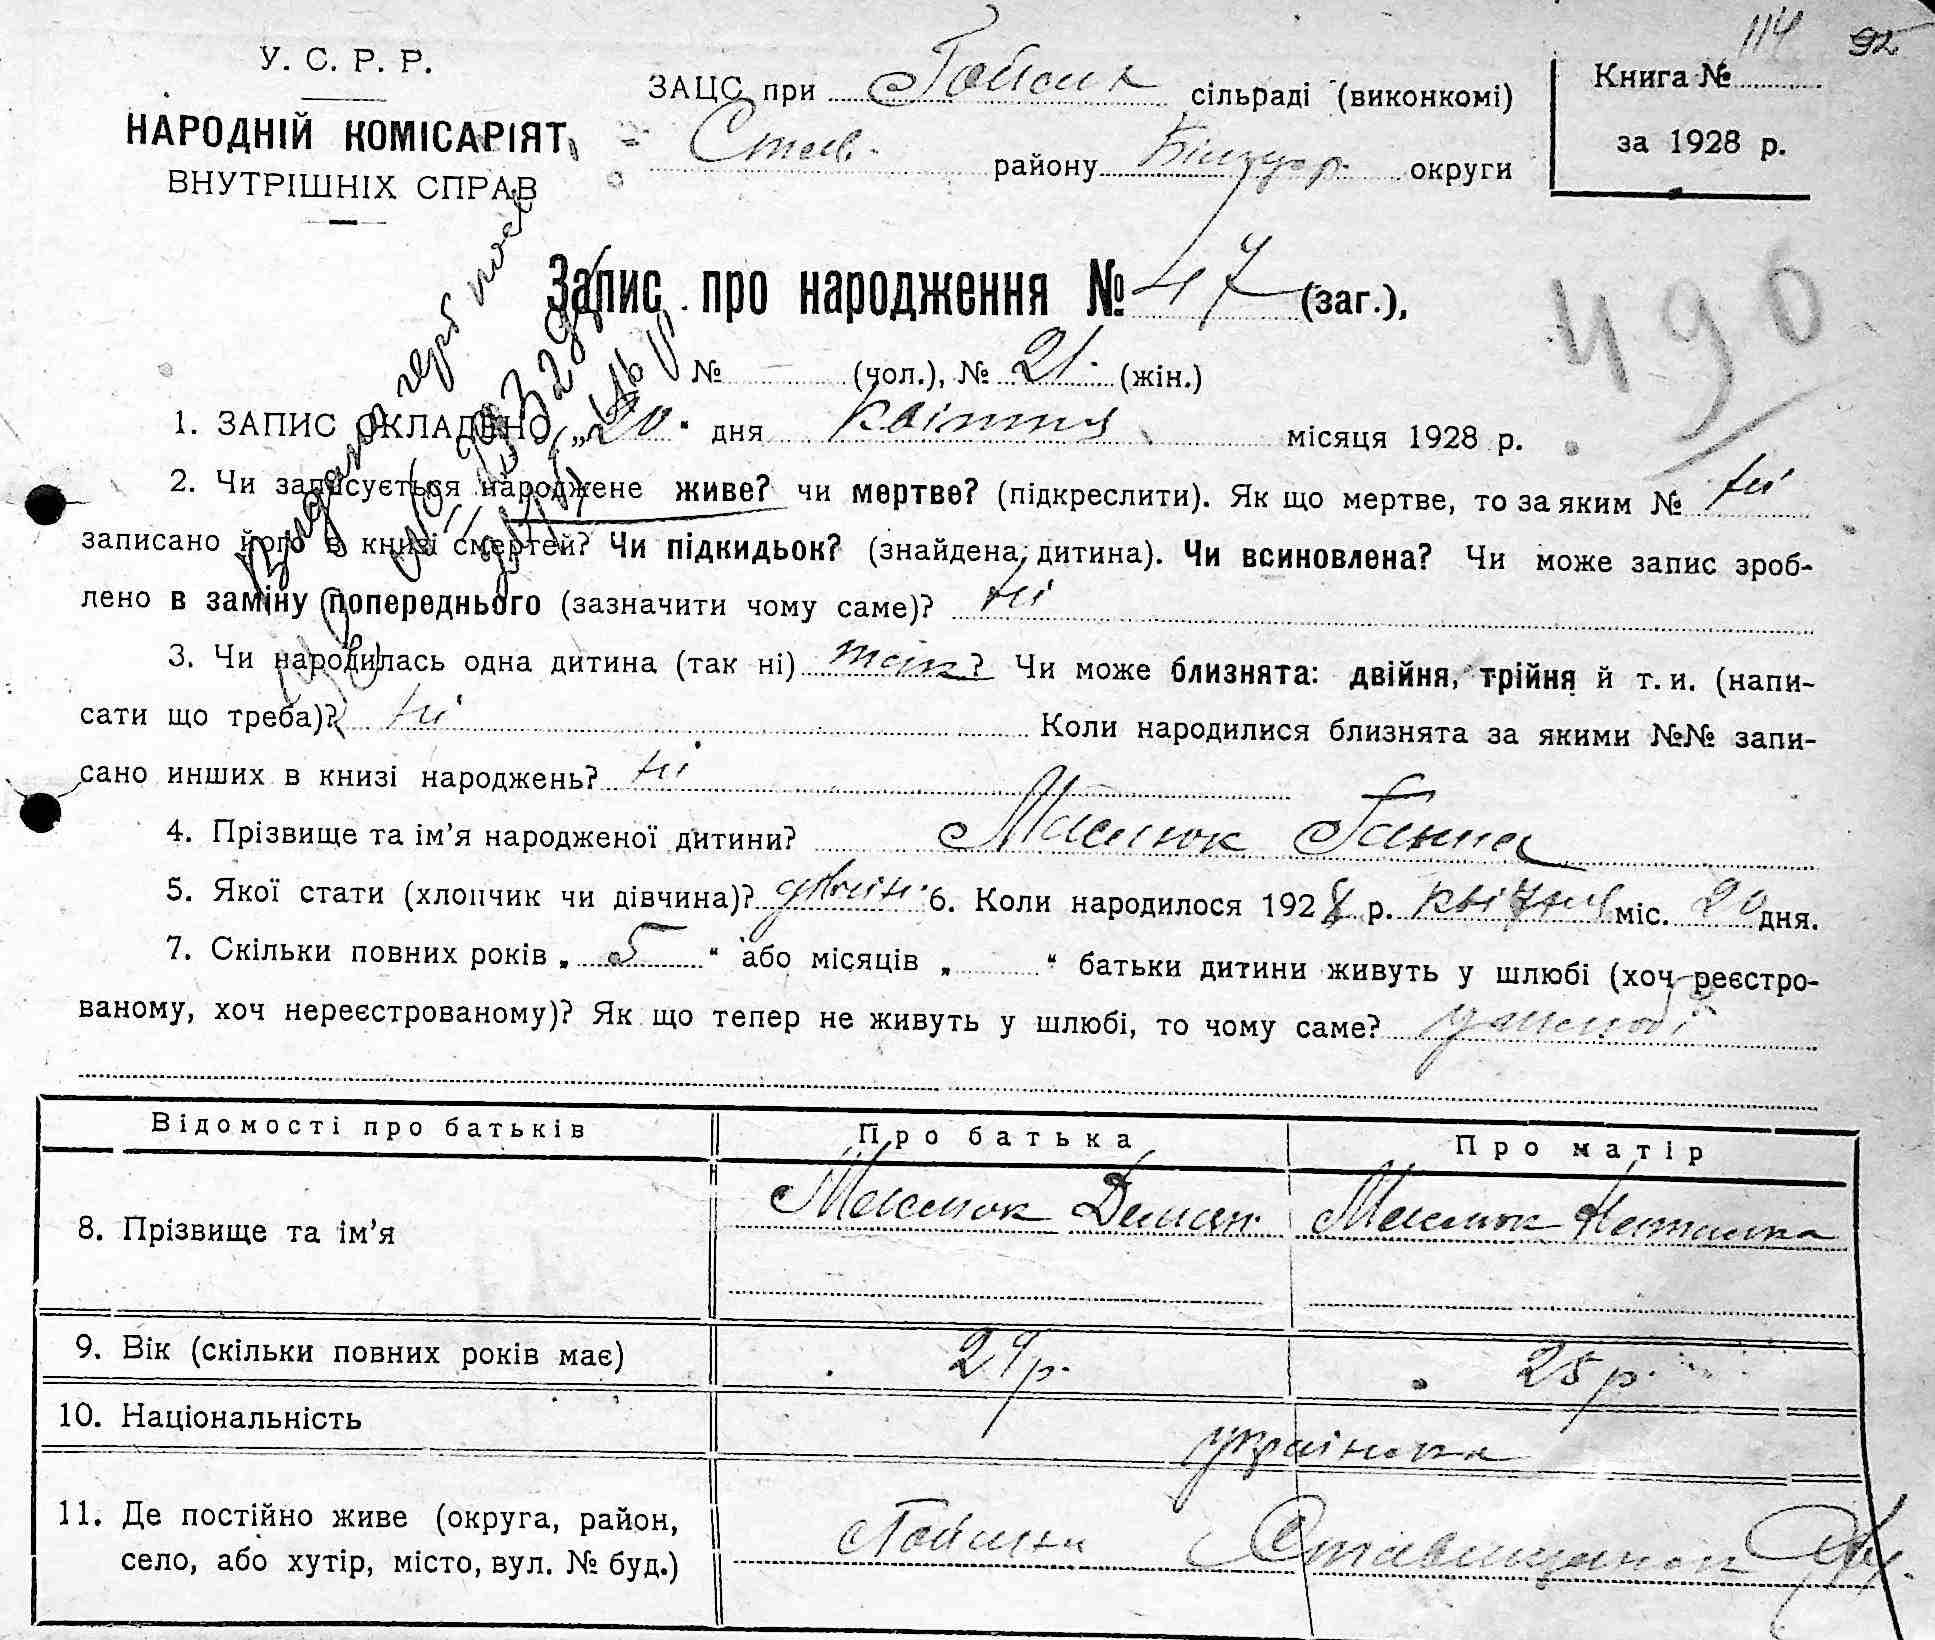 114 92
У. С. Р. Р.
НАРОДНІЙ КОМІСАРІЯТ
ВНУТРІШНІХ СПРАВ
ЗАЦС при сільраді (виконкомі)
Став. району Білцер. округи
Книга №
за 1928 р.
Запис про народження № 47 (заг.),
490
№ — (чол.), № 21. (жін.)
1. ЗАПИС СКЛАДЕНО „20“ дня квітня місяця 1928 р.
2. Чи записується народжене живе? чи мертве? (підкреслити). Як що мертве, то за яким № ні
записано його в книзі смертей? Чи підкидьок? (знайдена дитина). Чи всиновлена? Чи може запис зроб-
лено в заміну (попереднього (зазначити чому саме)? ні
3. Чи народилась одна дитина (так ні) так? Чи може близнята: двійня, трійня й т. и. (напи-
сати що треба)? ні Коли народилися близнята за якими №№ запи-
сано инших в книзі народжень? ні
4. Прізвище та ім’я народженої дитини? Маслюк Ганна
5. Якої стати (хлопчик чи дівчина)? дівчин. 6. Коли народилося 1928 р. квітня міс. 20 дня.
7. Скільки повних років „ 5 “ або місяців „ “ батьки дитини живуть у шлюбі (хоч реєстро-
ваному, хоч нереєстрованому)? Як що тепер не живуть у шлюбі, то чому саме? у шлюбі
Відомості про батьків Про батька Про матір
8. Прізвище та ім’я Маслюк Демян. Маслюк Наталка
9. Вік (скільки повних років має) 29 р. 25 р.
10. Національність українська
11. Де постійно живе (округа, район,
село, або хутір, місто, вул. № буд.)